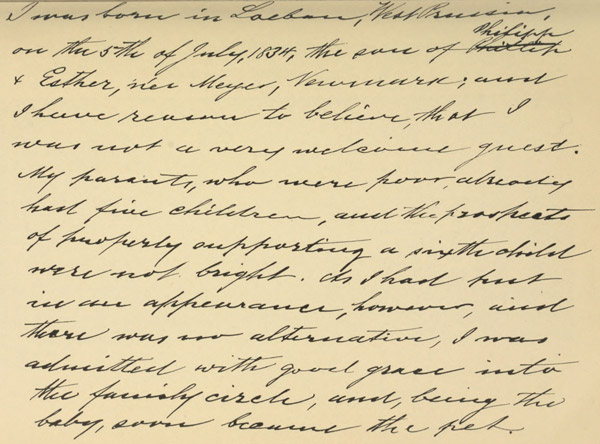 I was born in Loebau, West Prussia,
on the 5th of July, 1834, the son of Philipp
& Esther, née Meyer, Newmark; and
I have reason to believe, that I
was not a very welcome guest.
My parents, who were poor, already
had five children, and the prospects
of properly supporting a sixth child
were not bright. As I had put
in an appearance, however, and
there was no alternative, I was
admitted with good grace into
the family circle, and, being the
baby, soon became the pet.